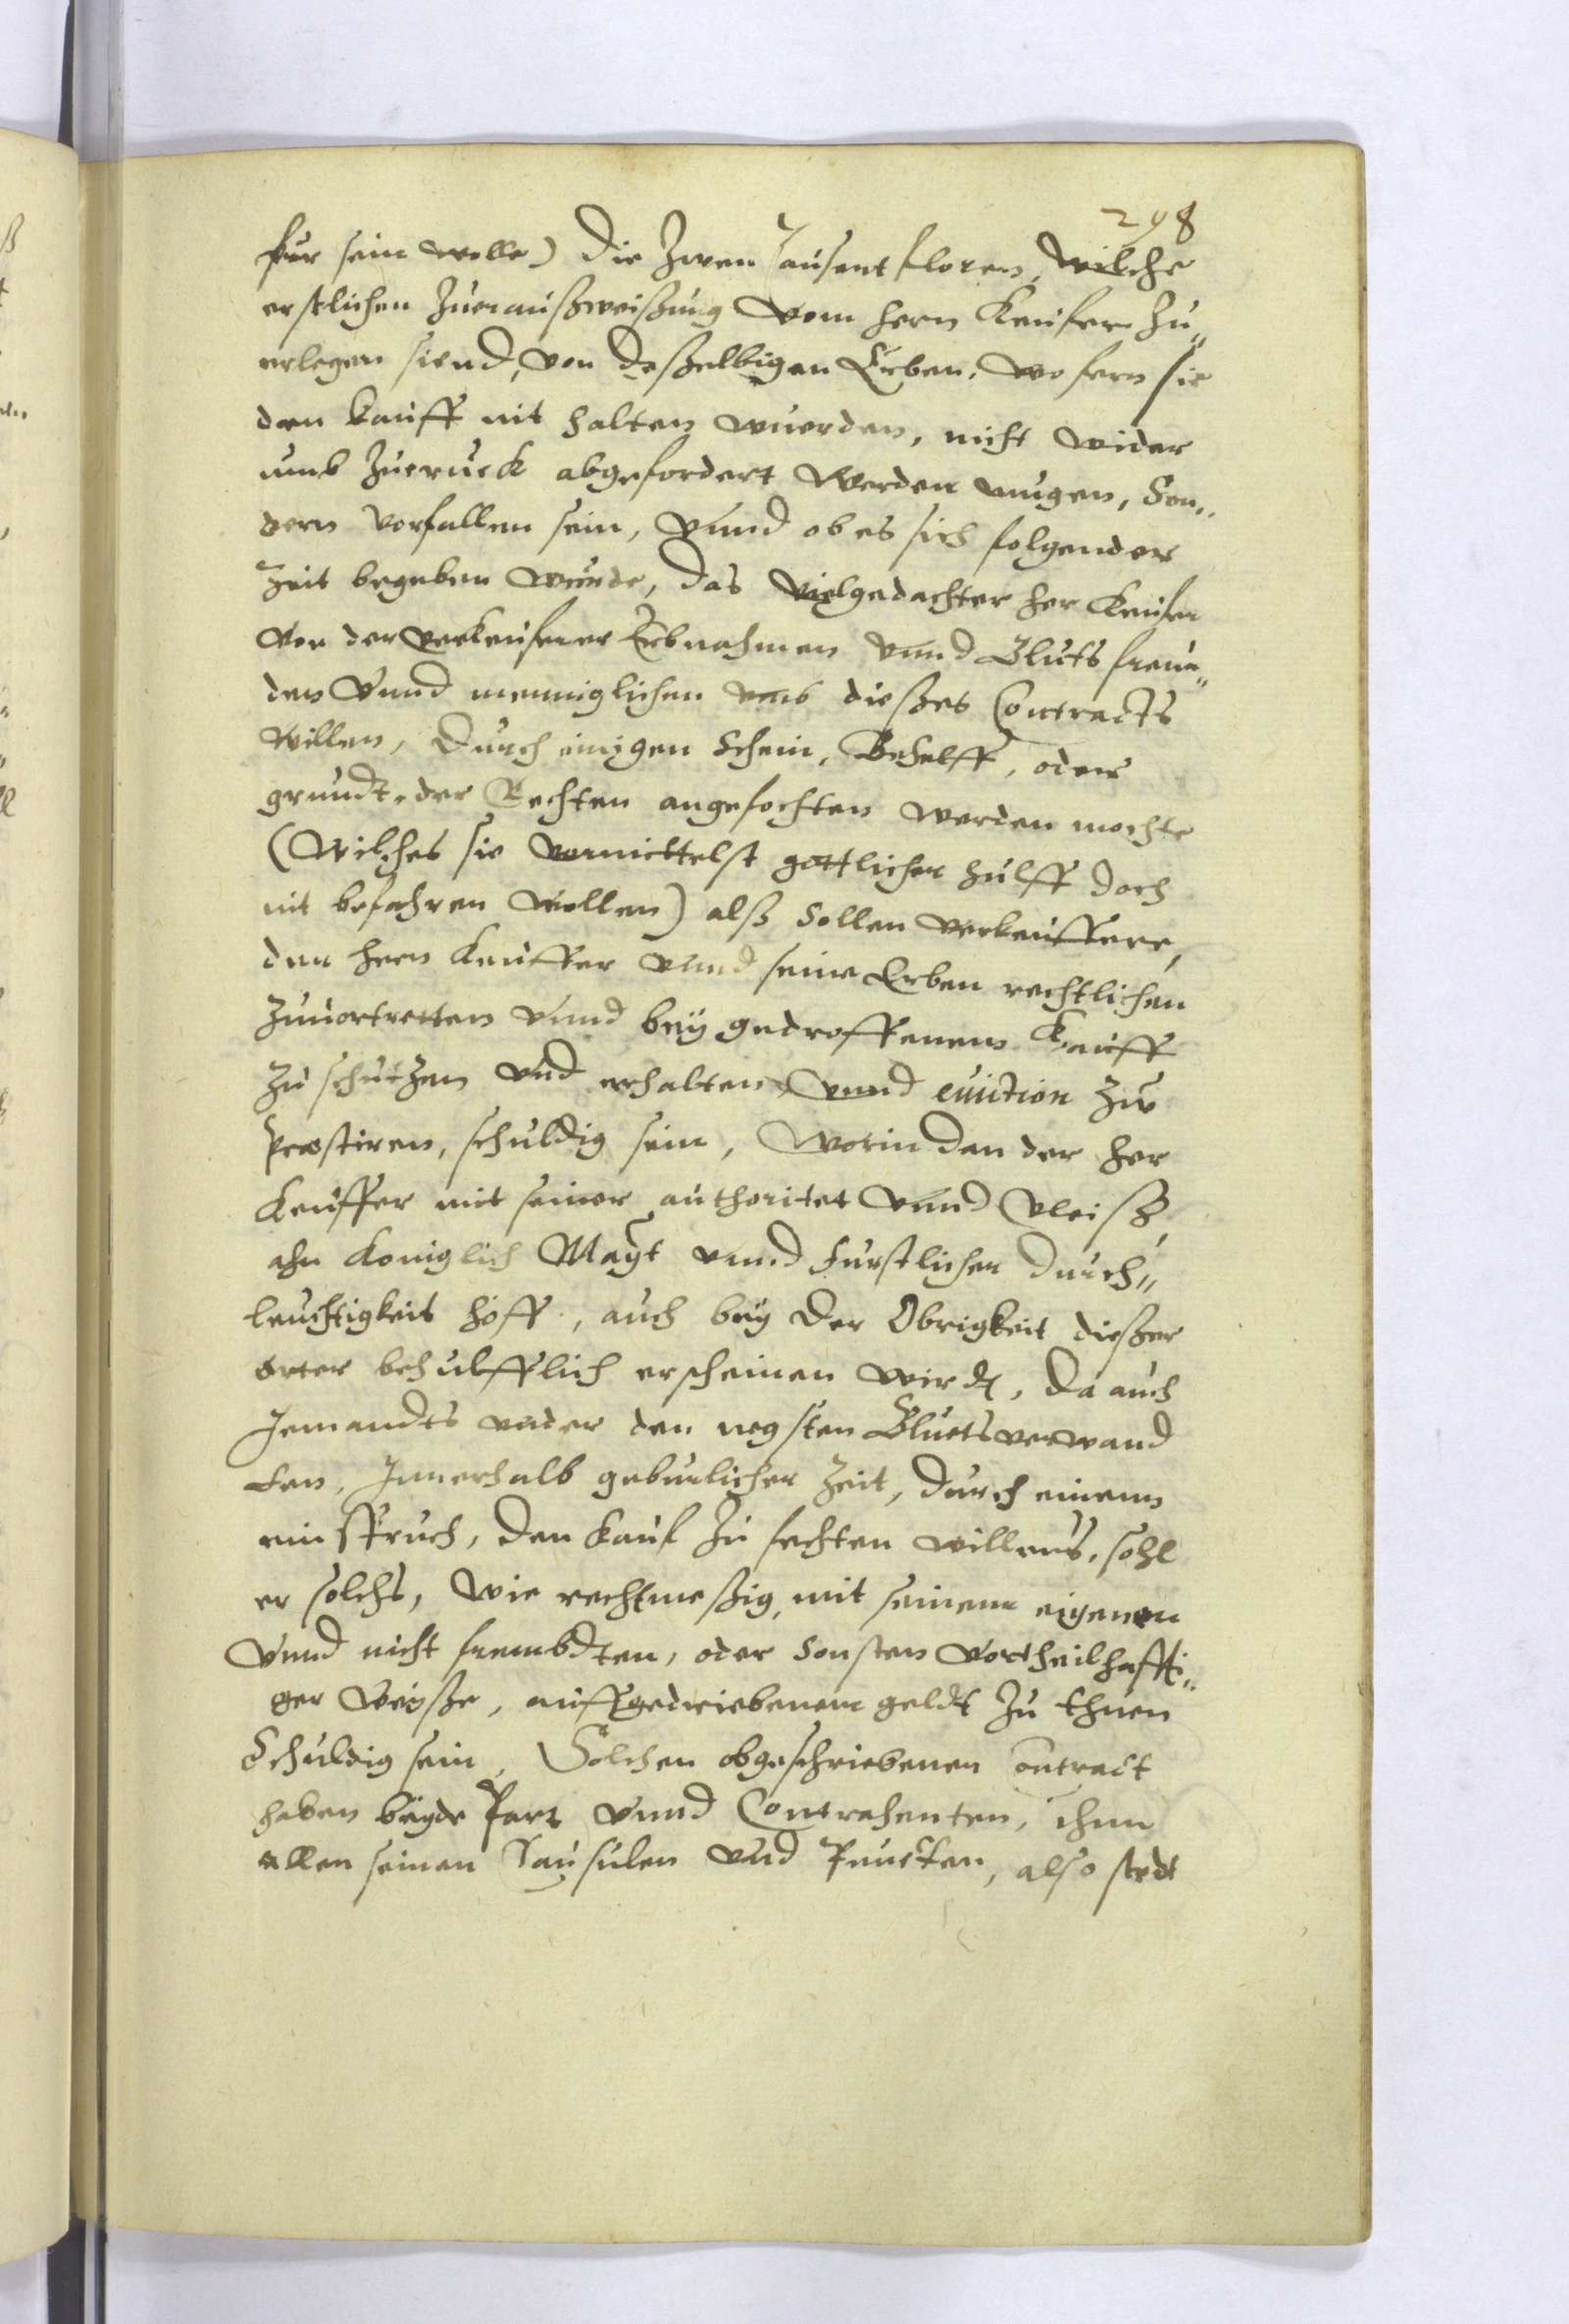 298
fur sein wolle) die zwen tausent floren, wilche
erstlichen zuer außweißung vom hern Keufer zu„
erlegen siend, von deßelbigen Erben, wo fern sie
den kauff nit halten wuerden, nicht wider
umb zuerueck abgefordert werden mugen, Son„
dern vorfallen sein, vnnd ob es sich folgender
Zeit begeben wurde, das vielgedachter her Keufer
von der verkeuferer Erbnahmen vnnd Bluts freun„
den vnnd menniglichen vmb dießes Contracts
willen, durch einigen schein, Behelff, oder
grundt der Rechten angefochten werden mochte
(wilches sie vermittelst gottlicher hulff doch
nit befahren wollen) alß sollen verkeuffere,
den hern Keuffer vnnd seine Erben rechtlichen
zuuortretten vnnd bey gedroffenem Kauff
zu schutzen vnd erhalten, vnnd euiction zu
praestiren, schuldig sein, worin dan der her
Keuffer mit seiner authoritet vnnd vleiß,
ahn Koniglich Mayt vnnd furstlicher durch„
leuchtigkeit hoff, auch bey der Obrigkeit dießer
örter behulfflich erscheinen wirdt, da auch
Jemandts vnder den negsten Bluets verwand
ten, Innerhalb geburlicher Zeit, durch einem
einspruch, den kauf zu fechten willens, sohl
er solchs, wie rechtmeßig, mit seinem eigenen
vnnd nicht frembdten, oder sonsten vortheilhaffti„
ger weiße, auffgedriebenem geldt zu thuen
schuldig sein, Solchen obgeschriebenen contract
haben beyde Part vnnd Contrahenten, ihnn
allen seinen Clausulen vnd Puncten, also stedt